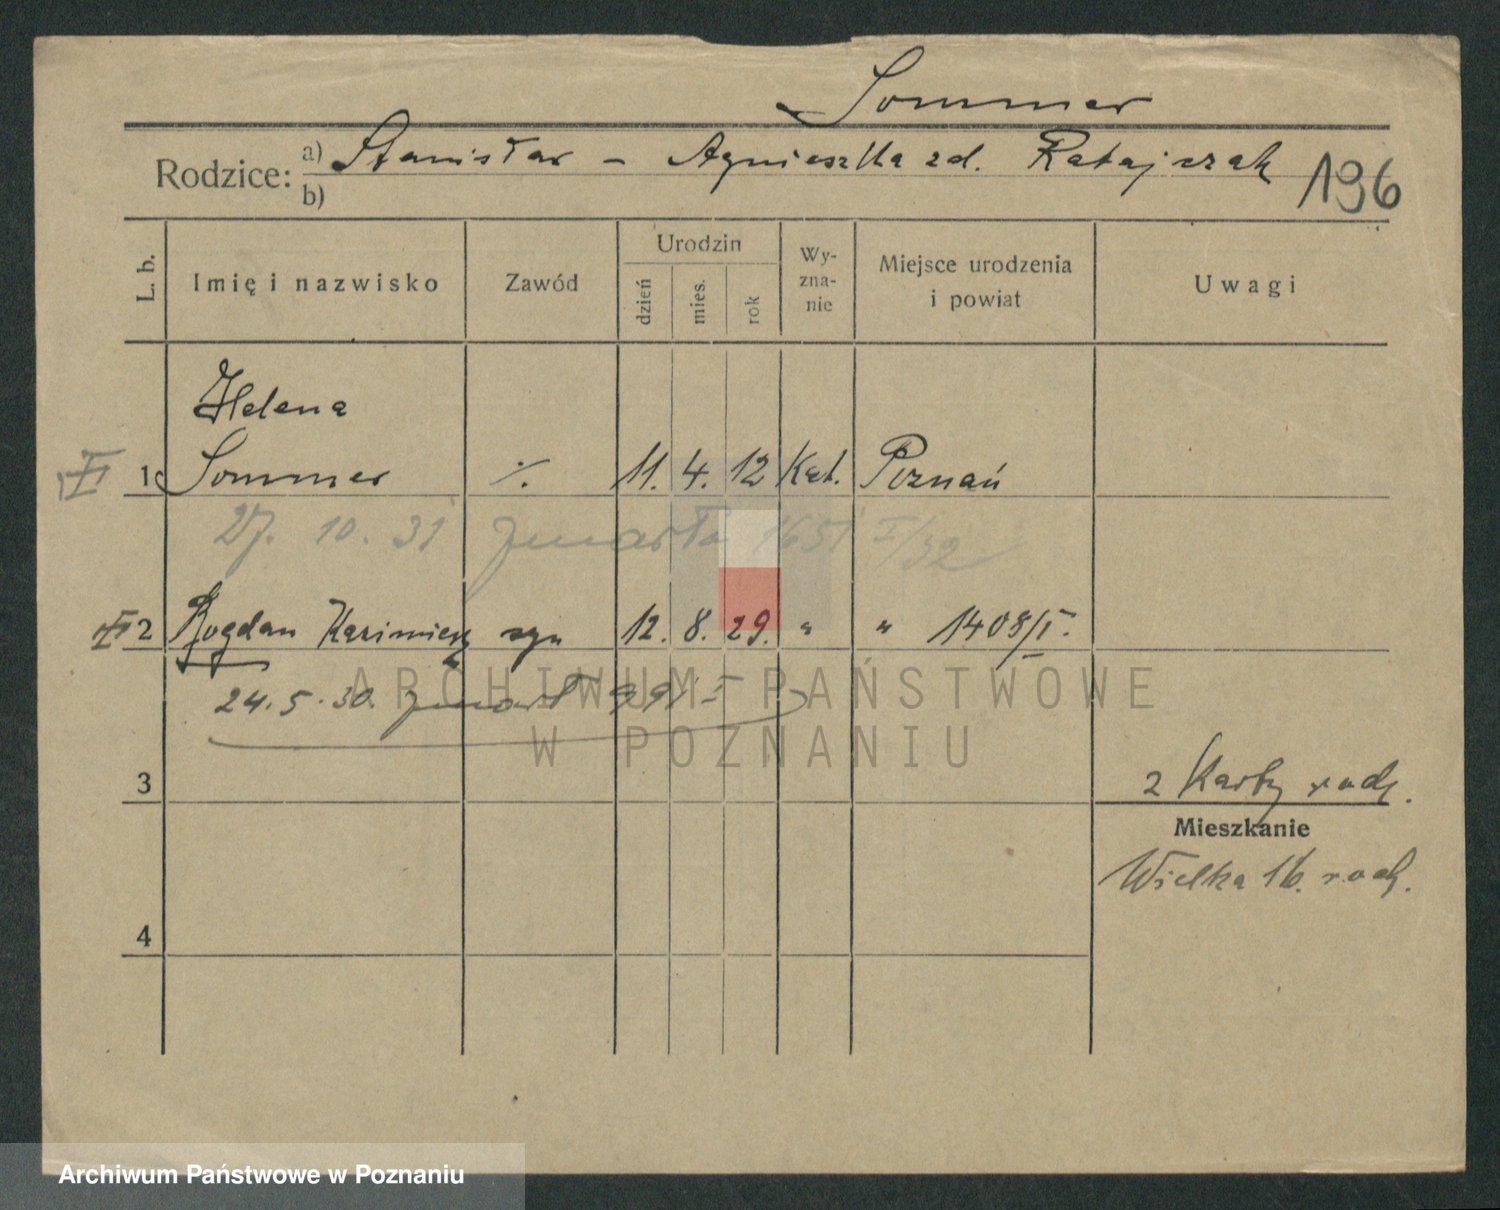 Sommer
Rodzice: a) Stanisław - Agnieszka zd. Ratajczak
b)
196
L. b. Imię i nazwisko Zawód Urodzin dzień mies. rok Wy-zna-nie Miejsce urodzenia i powiat Uwagi
Helena
1 Sommer ./. 11. 4. 12 Kat. Poznań
27. 10. 31 zmarła 1651 I/32
2 Bogdan Kazimierz syn 12. 8. 29. " " 1408/I.
24. 5. 30. zmarł 991 I
ARCHIWUM PAŃSTWOWE
W POZNANIU
3
2 Karty rodz.
Mieszkanie
Wielka 16. rodz.
4
Archiwum Państwowe w Poznaniu